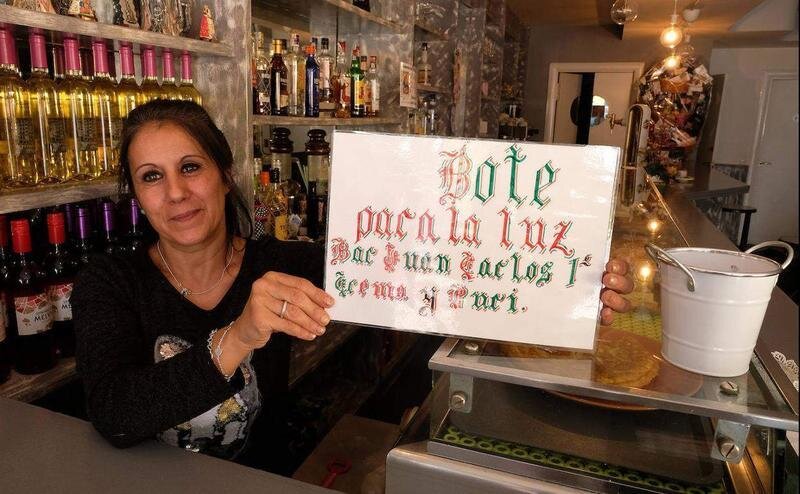 Bote
para la luz
Bar Juan Carlos 1º
Gema y Puri.